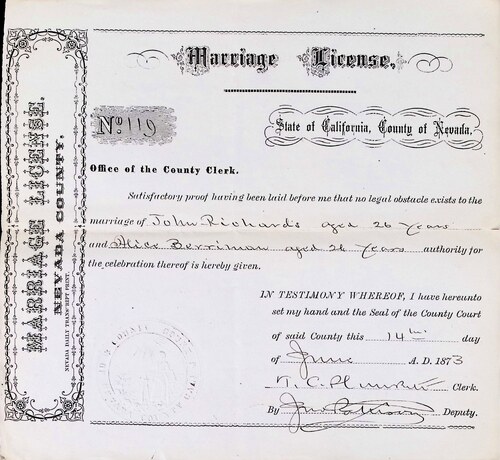 Marriage License,
No. 119
State of California, County of Nevada.
Office of the County Clerk.
Satisfactory proof having been laid before me that no legal obstacle exists to the
marriage of John Richards aged 26 Years
and Alice Berriman aged 26 Years authority for
the celebration thereof is hereby given.
IN TESTIMONY WHEREOF, I have hereunto
set my hand and the Seal of the County Court
of said County this 14th day
of June A. D. 1873
T. C. Plunkett Clerk.
By Deputy.
MARRIAGE LICENSE.
NEVADA COUNTY.
NEVADA DAILY TRANSCRIPT PRINT.